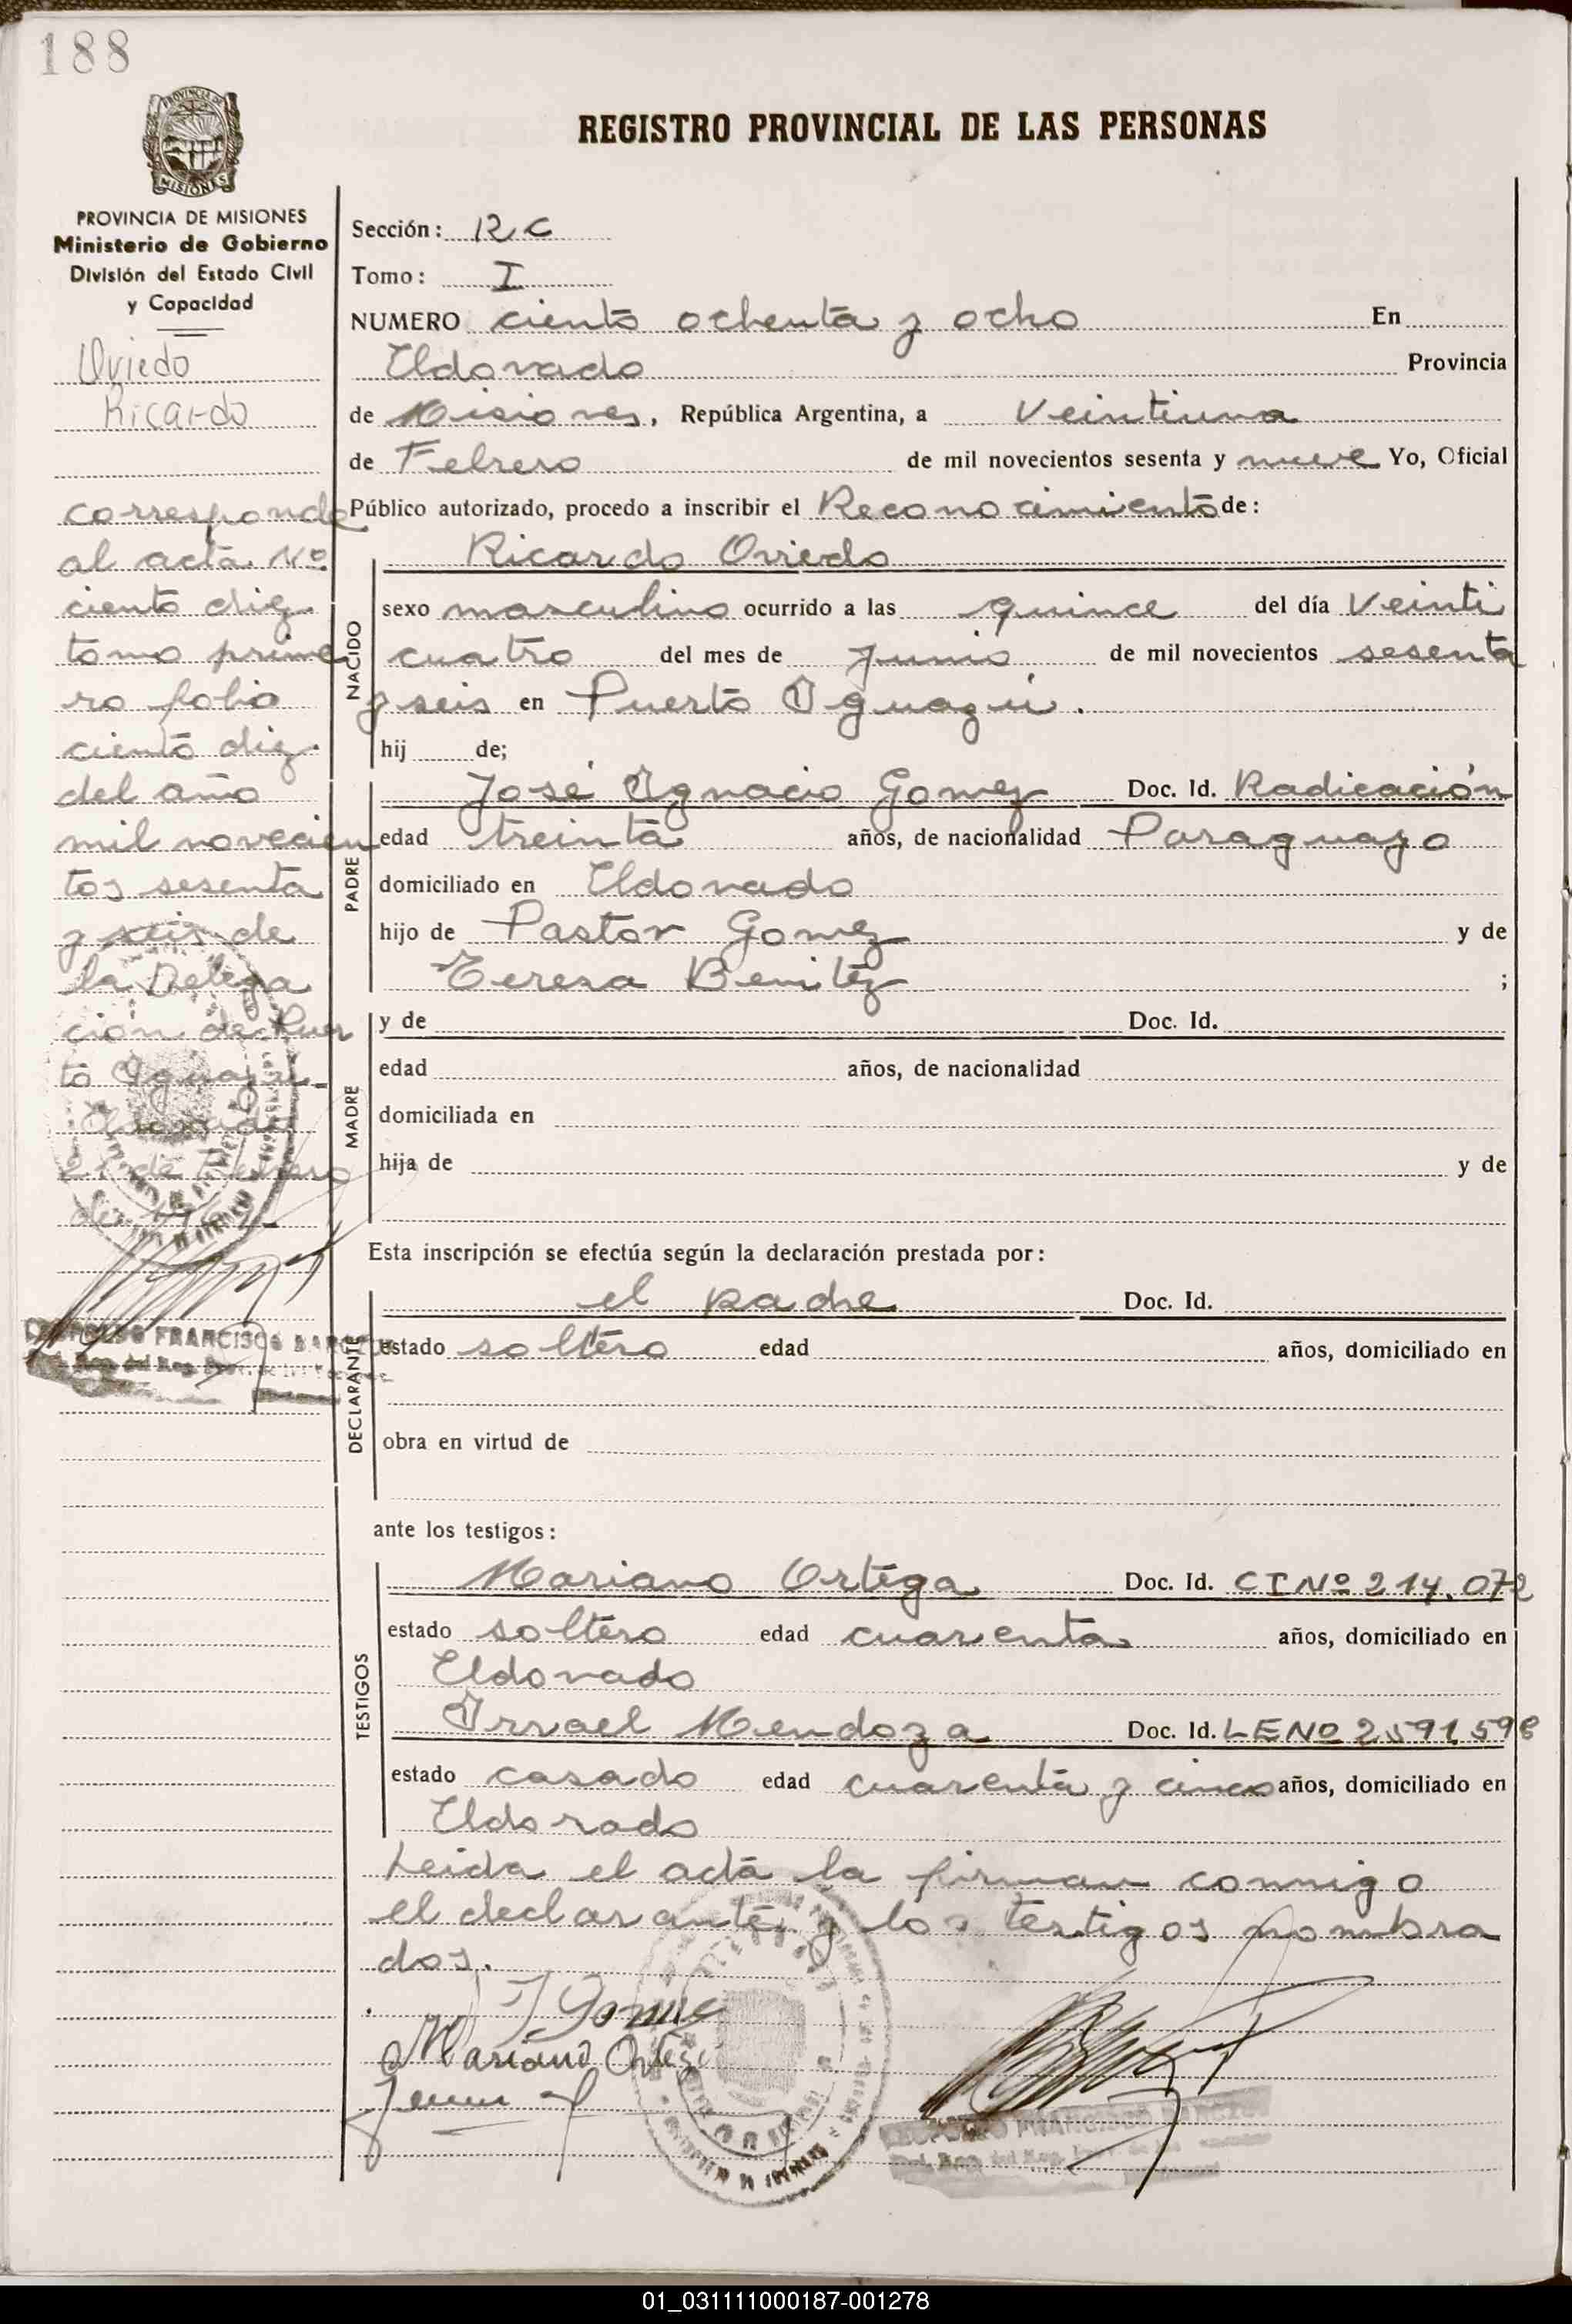 188
PROVINCIA DE
MISIONES
REGISTRO PROVINCIAL DE LAS PERSONAS
PROVINCIA DE MISIONES
Ministerio de Gobierno
División del Estado Civil
y Capacidad
Oviedo
Ricardo
corresponde
al acta Nº
ciento diez
tomo prime
ro folio
ciento diez
del año
mil novecien
tos sesenta
y seis de
la Delega
ción de Puer
to Iguazú.
Eldorado
21 de Febrero
de
FRANCISCO
Sección: RC
Tomo: I
NUMERO ciento ochenta y ocho En
Eldorado Provincia
de Misiones, República Argentina, a Veintiuno
de Febrero de mil novecientos sesenta y nueve Yo, Oficial
Público autorizado, procedo a inscribir el Reconocimiento de:
NACIDO
Ricardo Oviedo
sexo masculino ocurrido a las quince del día Veinti
cuatro del mes de Junio de mil novecientos sesenta
y seis en Puerto Iguazú.
hij de;
PADRE
José Ignacio Gomez Doc. Id. Radicación
edad treinta años, de nacionalidad Paraguayo
domiciliado en Eldorado
hijo de Pastor Gomez y de
Teresa Benitez ;
MADRE
y de Doc. Id.
edad años, de nacionalidad
domiciliada en
hija de y de
Esta inscripción se efectúa según la declaración prestada por:
DECLARANTE
el padre Doc. Id.
estado soltero edad años, domiciliado en
obra en virtud de
ante los testigos:
TESTIGOS
Mariano Ortega Doc. Id. CI Nº 214.072
estado soltero edad cuarenta años, domiciliado en
Eldorado
Israel Mendoza Doc. Id. LE Nº 2591598
estado casado edad cuarenta y cinco años, domiciliado en
Eldorado
Leida el acta la firman conmigo
el declarante y los testigos nombra
dos.
J Gomez
Mariano Ortega
FRANCISCO
01_031111000187-001278